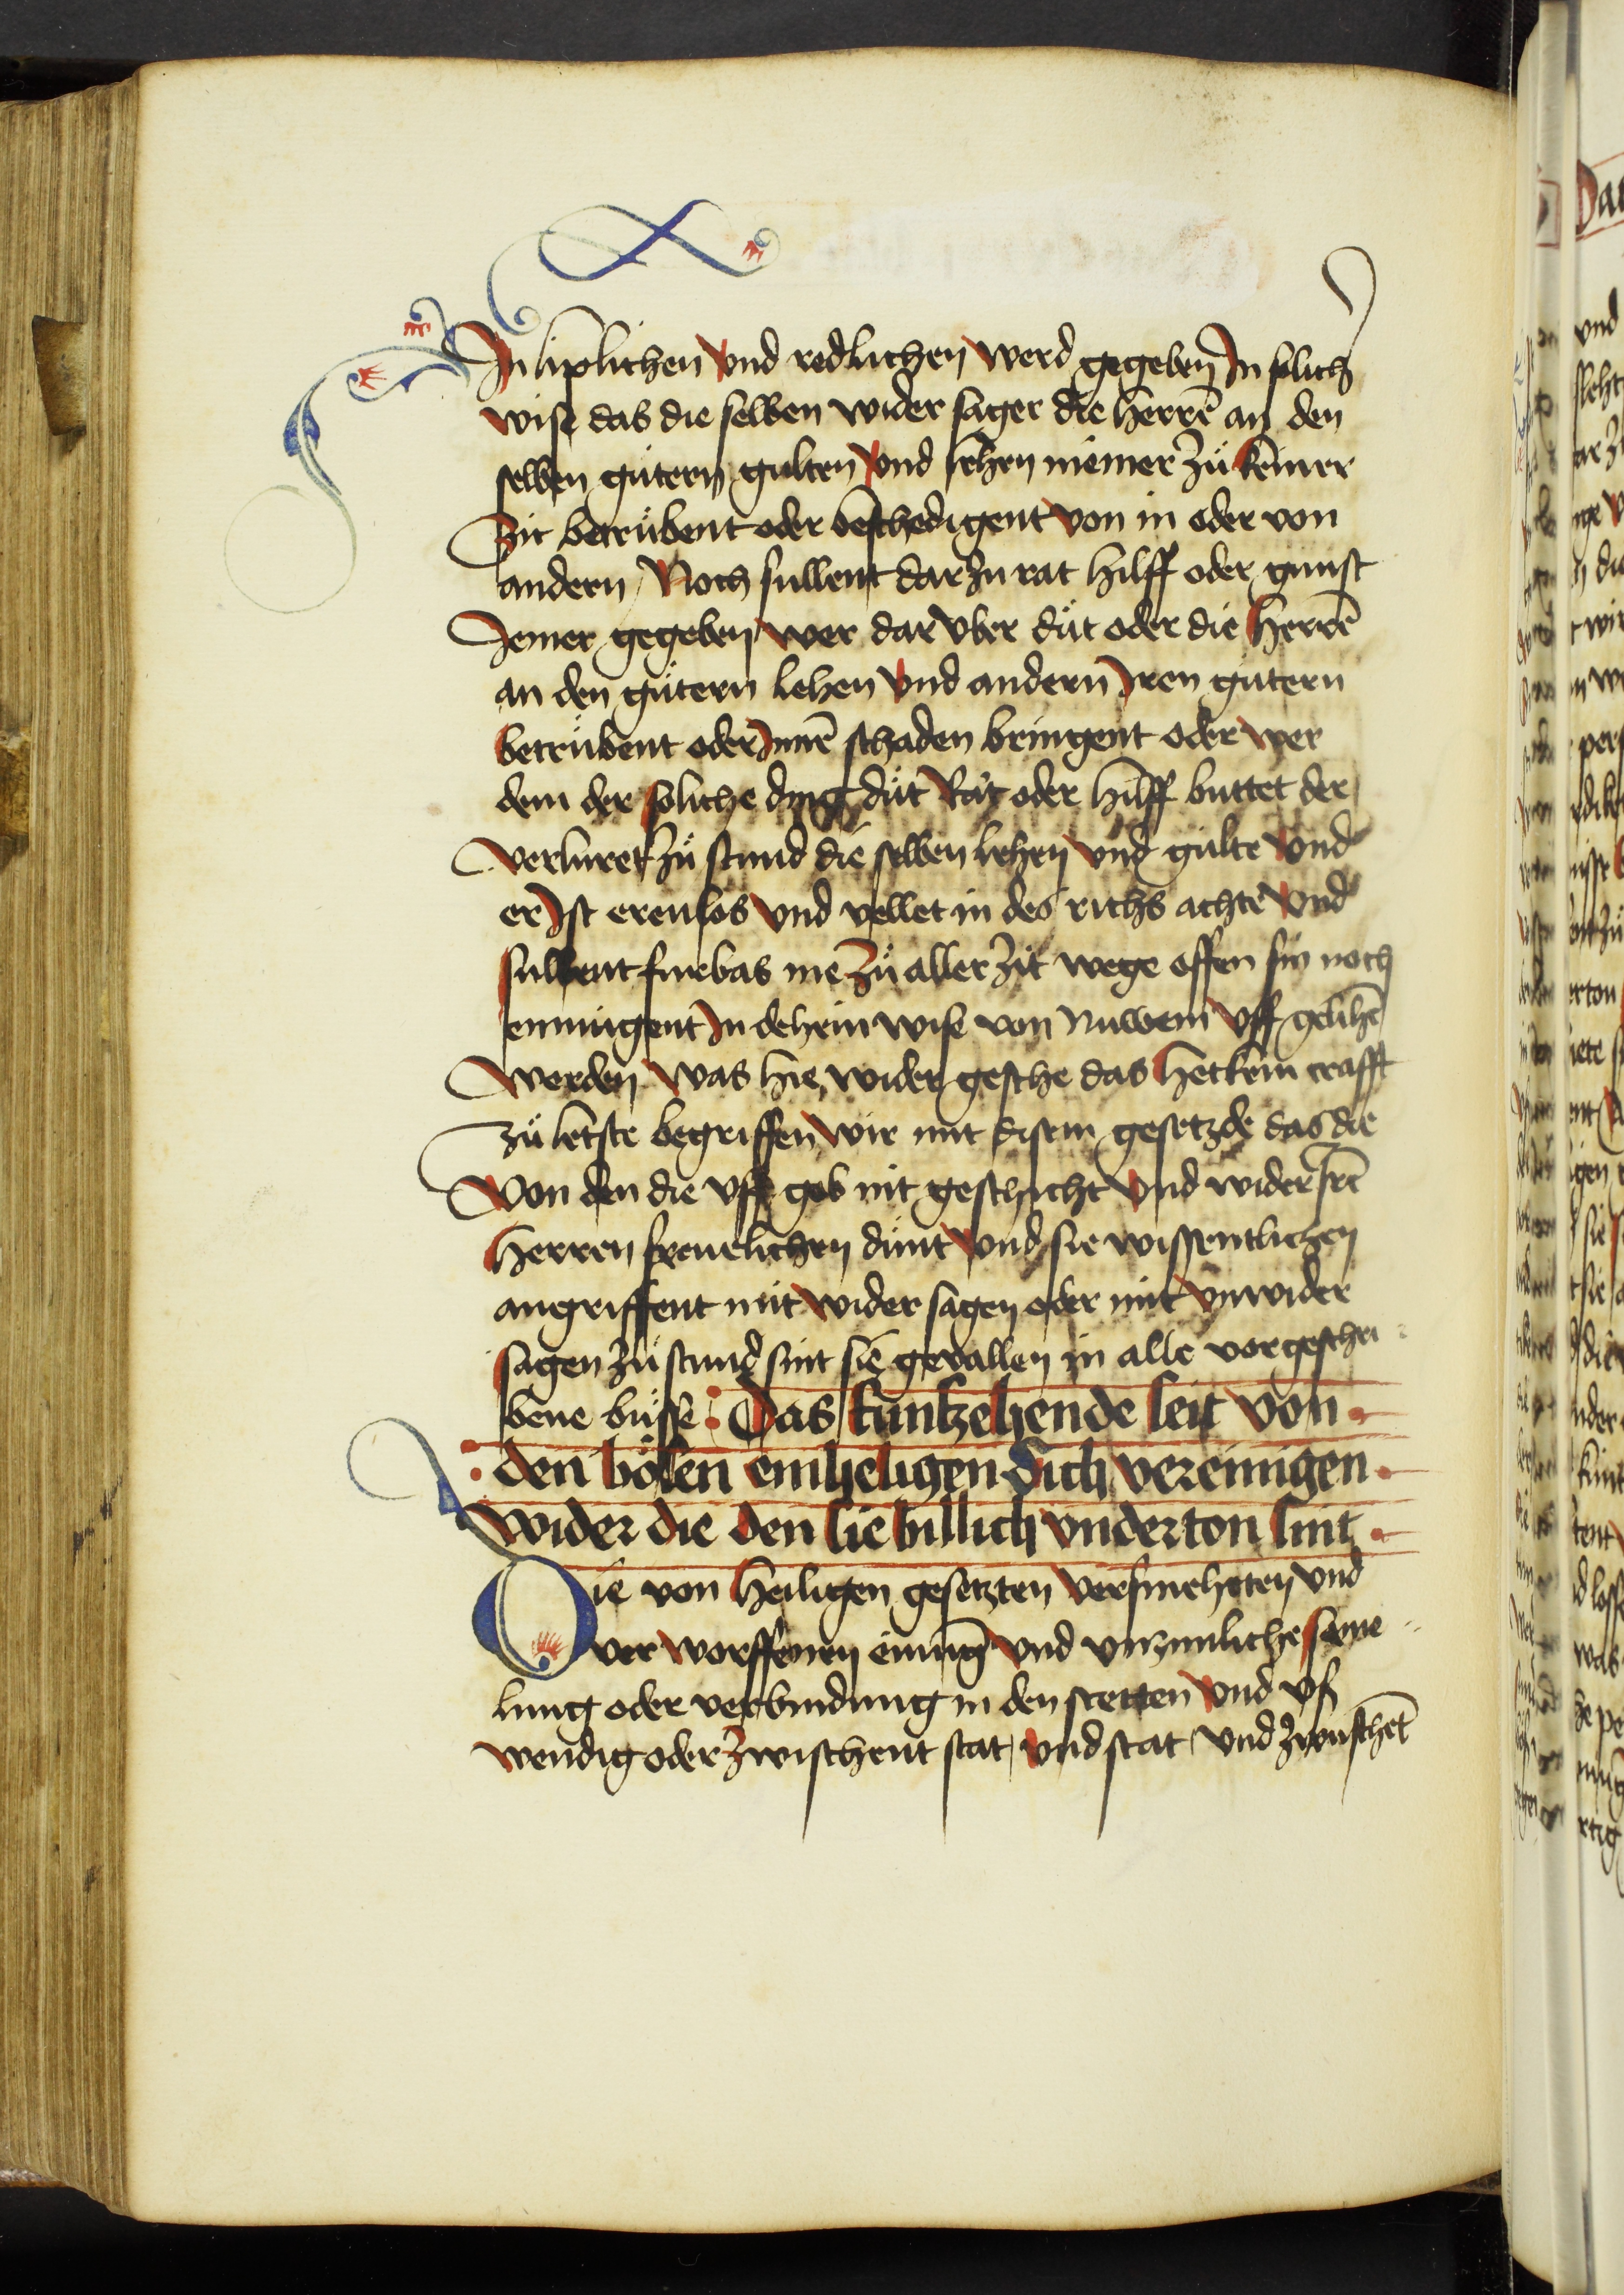 In liplichen vnd redlichen werd gegeben In solich
wise das die selben wider sager die herrē an den
selben gütern gulten vnd lehen niemer zü keiner
Zit betrübent oder beschedigent von in oder von
andern / Noch sullent dar zu rat hilff oder gunst
Jemer gegeben wer dar vber düt oder die herrē
an den gütern lehen vnd andern Iren gütern
betrübent oder Inen schaden bringent oder wer
dem der soliche ding düt Rat oder hilff buttet der
verluret zü stund die selben lehen vnd gülte vnd
er Ist erenlos vnd vellet in des richs achte vnd
sullent furbas nie zü aller zit wege offen sin noch
enmügent In dehein wise von Nuwem vff gelihē
werden was hie wider geschee das het kein crafft
zü letste begriffen wir mit disem gesetzde das die
Von den die vff gob nit geschicht vnd wider Ire
herren freuelichen dünt vnd sie wissentlichen
angriffent mit wider sagen oder mit vnwider
sagen zü stund sint sie gevallen in alle vorgeschri
bene büsse Das funfzehende seit von
den bösen einheligen sich vereinigen
wider die den sie billich vnderton sint
Die von heiligen gesetzten versmehten vnd
ver worffenen einung vnd vnzimliche same
lung oder verbindung in den stetten vnd vs
wendig oder zwischent stat vnd stat vnd zwuschēt